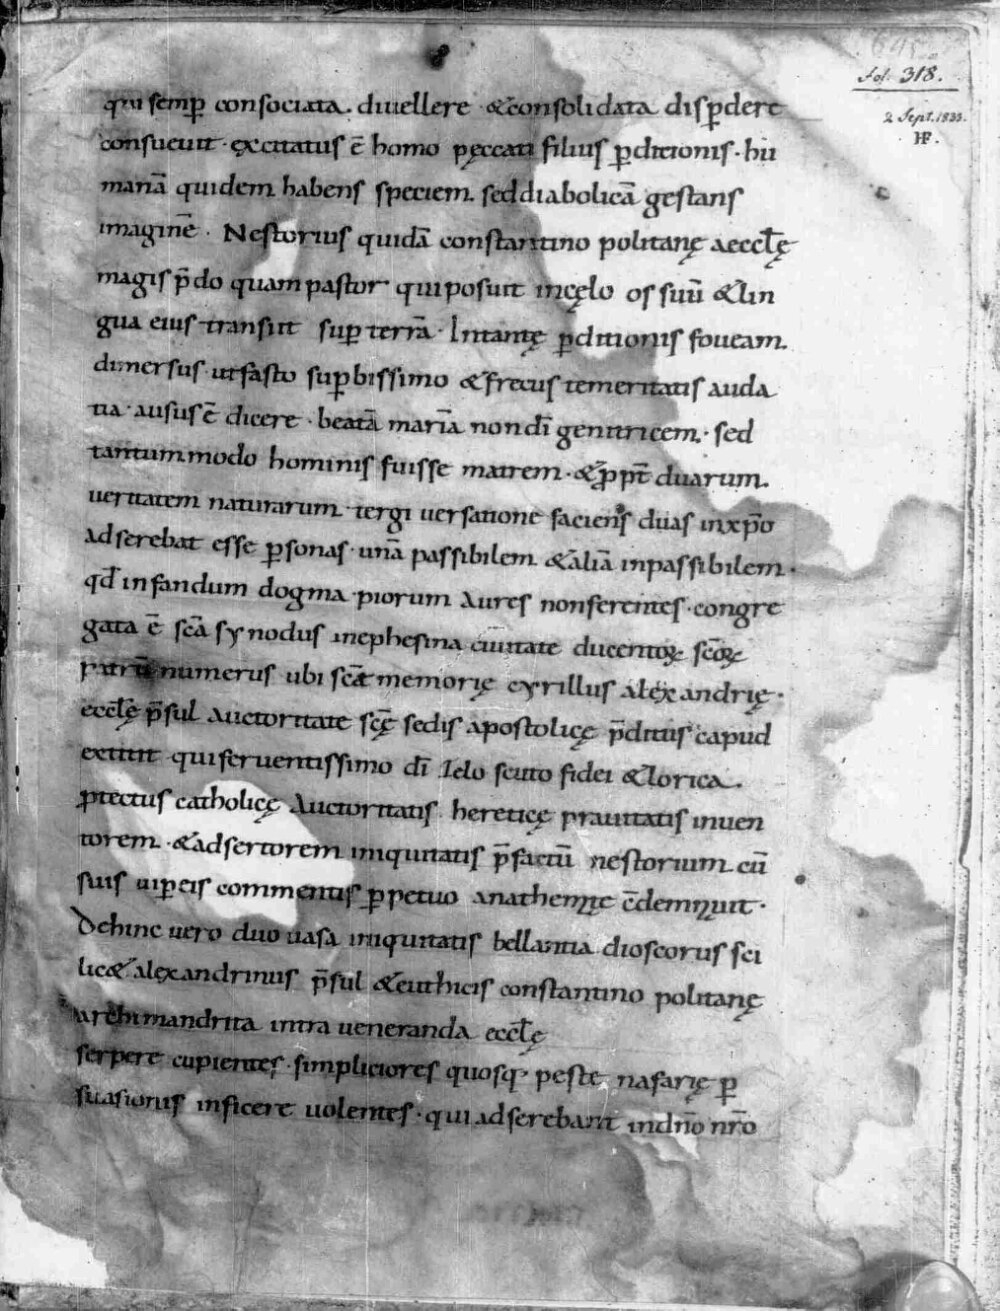 645
fol. 318.
2 Sept. 1833.
HF.
qui semꝑ consociata. diuellere · &consolidata disꝑdere
consueuit · excitatus ē homo pęccati filius ꝑditionis · hu
manā quidem habens speciem. sed diabolicā gestans
imaginē · Nestorius quidā constantino politanę aecclę̄
magis p̄do quam pastor qui posuit in cęlo os suū &lin
gua eius transiit suꝑ terrā · In tantę ꝑditionis foueam.
dimersus · ut fasto suꝑbissimo &fretus temeritatis auda
tia · ausus ē dicere · beatā mariā non dī genitricem · sed
tantummodo hominis fuisse matrem · &ꝓpt̄ duarum.
ueritatem naturarum · tergi uersatione faciens duas in xp̄o
adserebat esse ꝑsonas · unā passibilem &aliā inpassibilem ·
qd̄ infandum dogma · piorum aures non ferentes · congre
gata ē sc̄a synodus in ephesina ciuitate ducentoꝝ sc̄oꝝ
patrū numerus ubi sc̄ę memorię cyrillus alexandrię ·
ecclę̄ p̄sul auctoritate sc̄ę sedis apostolicę p̄ditus capud
extitit qui feruentissimo dī zelo scuto fidei &lorica.
ꝓtectus catholicę auctoritatis heretice prauitatis inuen
torem · &adsertorem iniquitatis p̄fatū nestorium cū
suis uiꝑeis commentis ꝑpetuo anathemate c̄demnuit ·
Dehinc uero duo uasa iniquitatis bellantia dioscorus sci
lic& alexandrinus p̄sul &euthicis constantino politanę
archimandrita intra ueneranda ecclę̄
serpere cupientes · simpliciores quosq· peste nafarię ꝑ
suasionis inficere uolentes · qui adserebant in dn̄o nr̄o